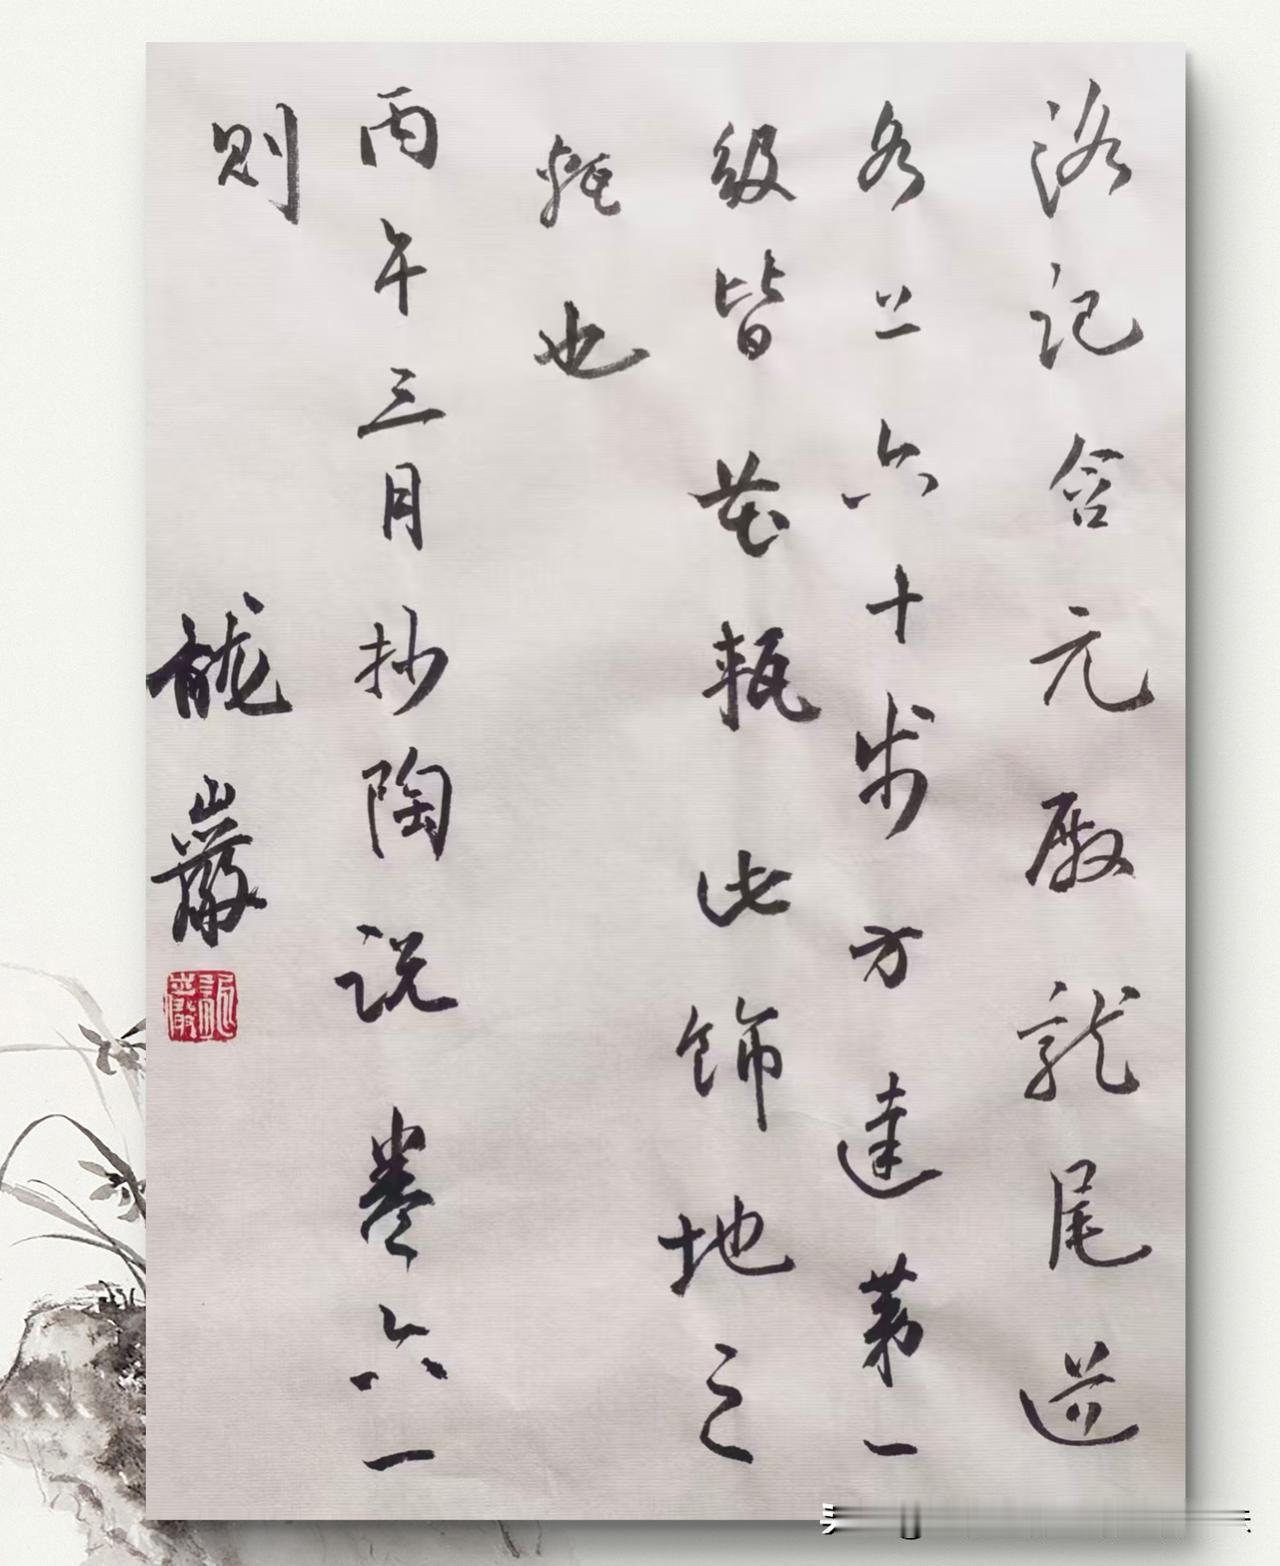 洛记含元殿龙尾道
各上六十步方达第一
级皆花甎此饰地之
甎也
丙午三月抄陶说卷六一
则
龙岩
龙岩